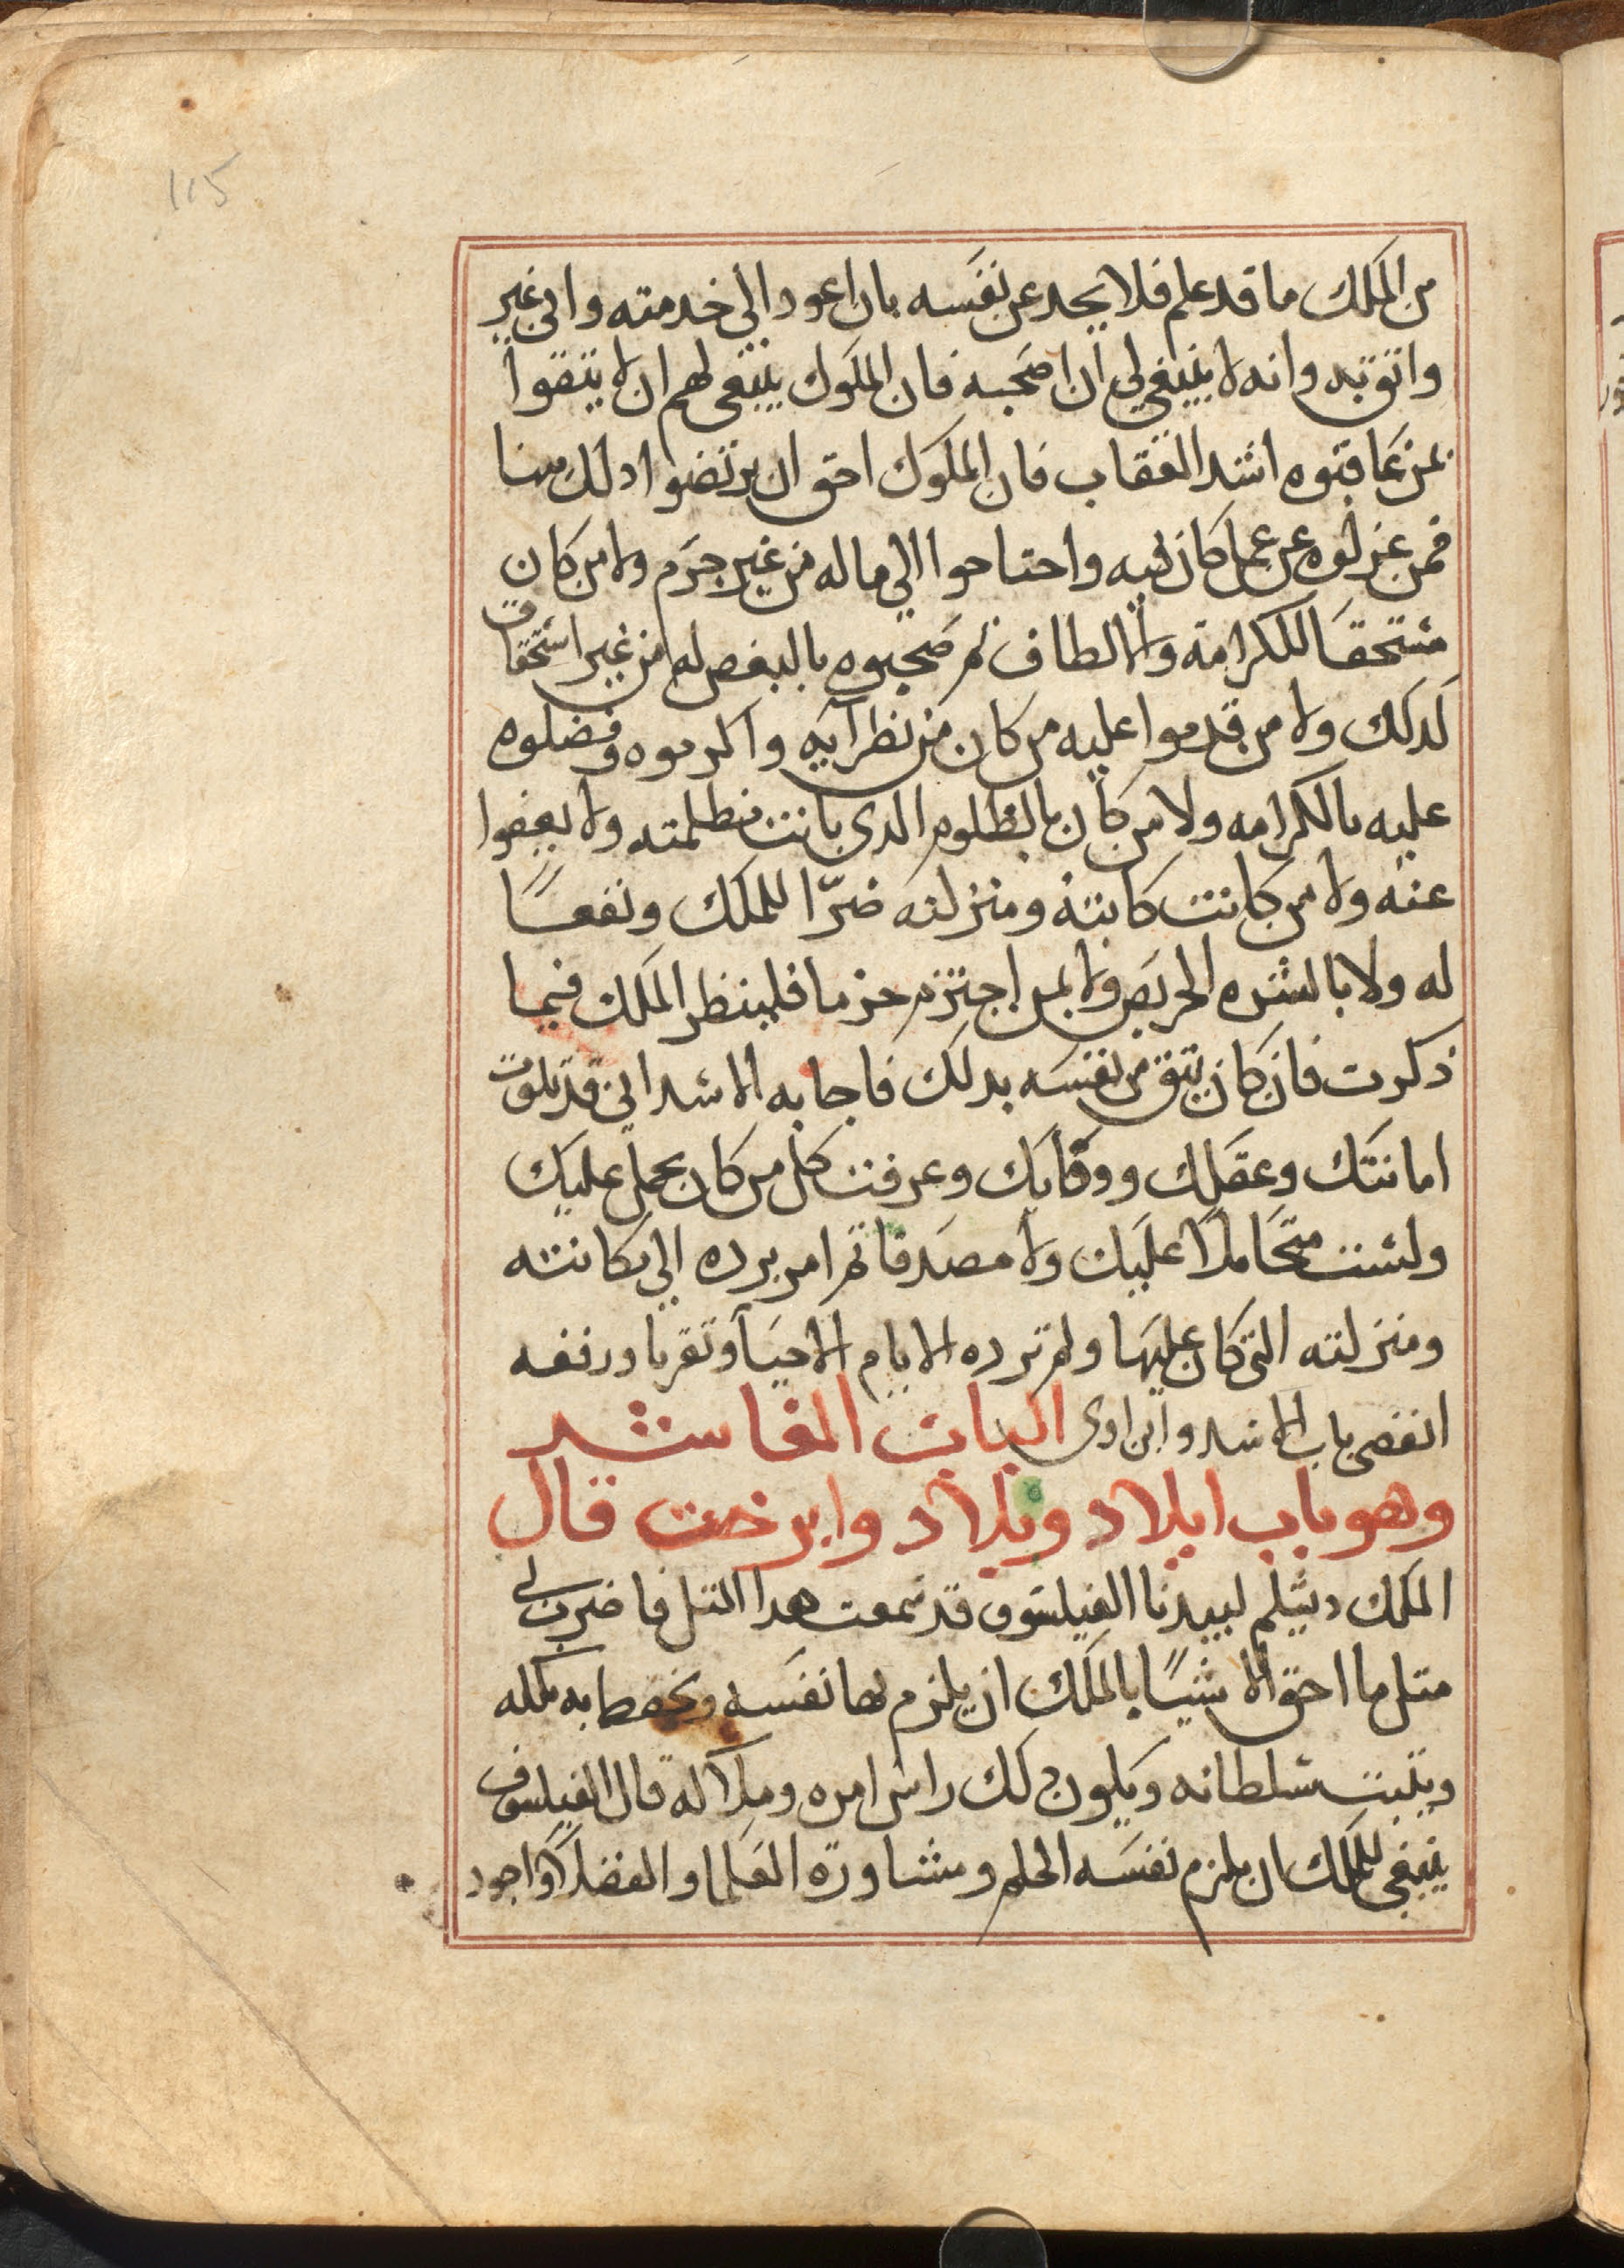 115
من الملك ما قد علم فلا يجد عن نفسه بان اعود الي خدمته واني غير
واثق به وانه لا ينبغي لي ان اصحبه فان الملوك ينبغي لهم ان لا يثقوا
بمن عاقبوه اشد العقاب فان الملوك احق ان يرتضوا ادلك منها
فمن عزلوه عن عمل كان فيه واحتاحوا الي ماله من غير جرم ولا من كان
مستحقا للكرامة والالطاف ثم صحبوه بالبغض له من غير استحقاق
لدلك ولا من قدموا عليه من كان من نظرآيه واكرموه وفضلوه
عليه بالكرامه ولا من كان بالظلوم الدي بانت مظلمته ولا يعفوا
عنه ولا من كانت كانته ومنزلته ضرّا للملك ونفعًا
له ولا بالشره الحريص ولا بمن اجترم جرما فلينظر الملك فيما
ذكرت فان كان يثق من نفسه بدلك فاجابه الاسد اني قد بلوت
امانتك وعقلك ووفايك وعرفت كل من كان يحمل عليك
ولست متحاملا عليك ولا مصدقا ثم امر برده الي مكانته
ومنزلته التي كان عليها ولم ترده الايام الا حبآ وتقربا ورفعه
انقضي باب الاسد وابن اوي الباب العاشر
وهو باب ايلاد وبلاد وايرخت قال
الملك دبشلم لبيدبا الفيلسوف قد سمعت هدا المثل فاضرب لي
مثل ما احق الاشيًا بالملك ان يلزم بها نفسه ويحفظ به ملكه
ويثبت سلطانه ويكون دلك راس امره وملاكه قال الفيلسوف
ينبغي للملك ان يلزم نفسه الحلم ومشاورة العلما والفضلا واجود